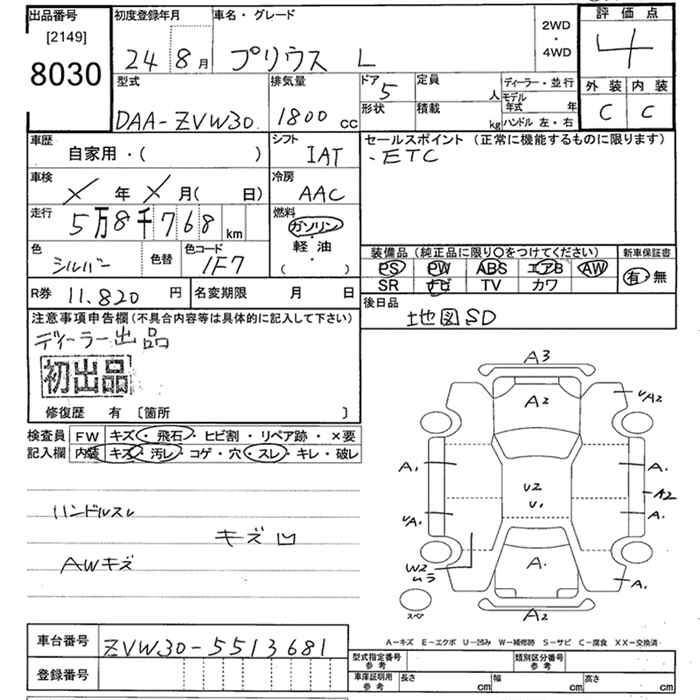 出品番号 初度登録年月 車名・グレード 2WD・4WD 評価点
[2149]
8030 24 8月 プリウス L 4
型式 排気量 ドア 定員 ディーラー・並行 外装 内装
5 人 モデル年式 年
DAA-ZVW30 1800cc 形状 積載 kg ハンドル 左・右 C C
車歴 シフト セールスポイント (正常に機能するものに限ります)
自家用・( ) IAT ・ETC
車検 冷房
X年 X月( 日) AAC
走行 燃料
5万8千768km ガソリン
色 色替 色コード 軽油 装備品 (純正品に限り○をつけてください) 新車保証書
シルバー 1F7 ( ) PS PW ABS エアB AW 有・無
SR ナビ TV カワ
R券 11,820円 名変期限 月 日 後日品
地図SD
注意事項申告欄(不具合内容等は具体的に記入して下さい)
ディーラー出品
初出品
修復歴 有 〔箇所 〕
検査員 FW キズ・飛石・ヒビ割・リペア跡・×要
記入欄 内装 キズ・汚レ・コゲ・穴・スレ・キレ・破レ
ハンドルスレ
キズ凹
AWキズ
A3
A2
UA2
A1
A1
U2
A2
U1
UA1
A1
W2
ムラ
A1
A1
スペア
A2
A-キズ E-エクボ U-凹み W-補修跡 S-サビ C-腐食 XX-交換済
車台番号 ZVW30-5513681
型式指定番号参考 類別区分番号参考
登録番号
車庫証明用参考 長さ cm 幅 cm 高さ cm